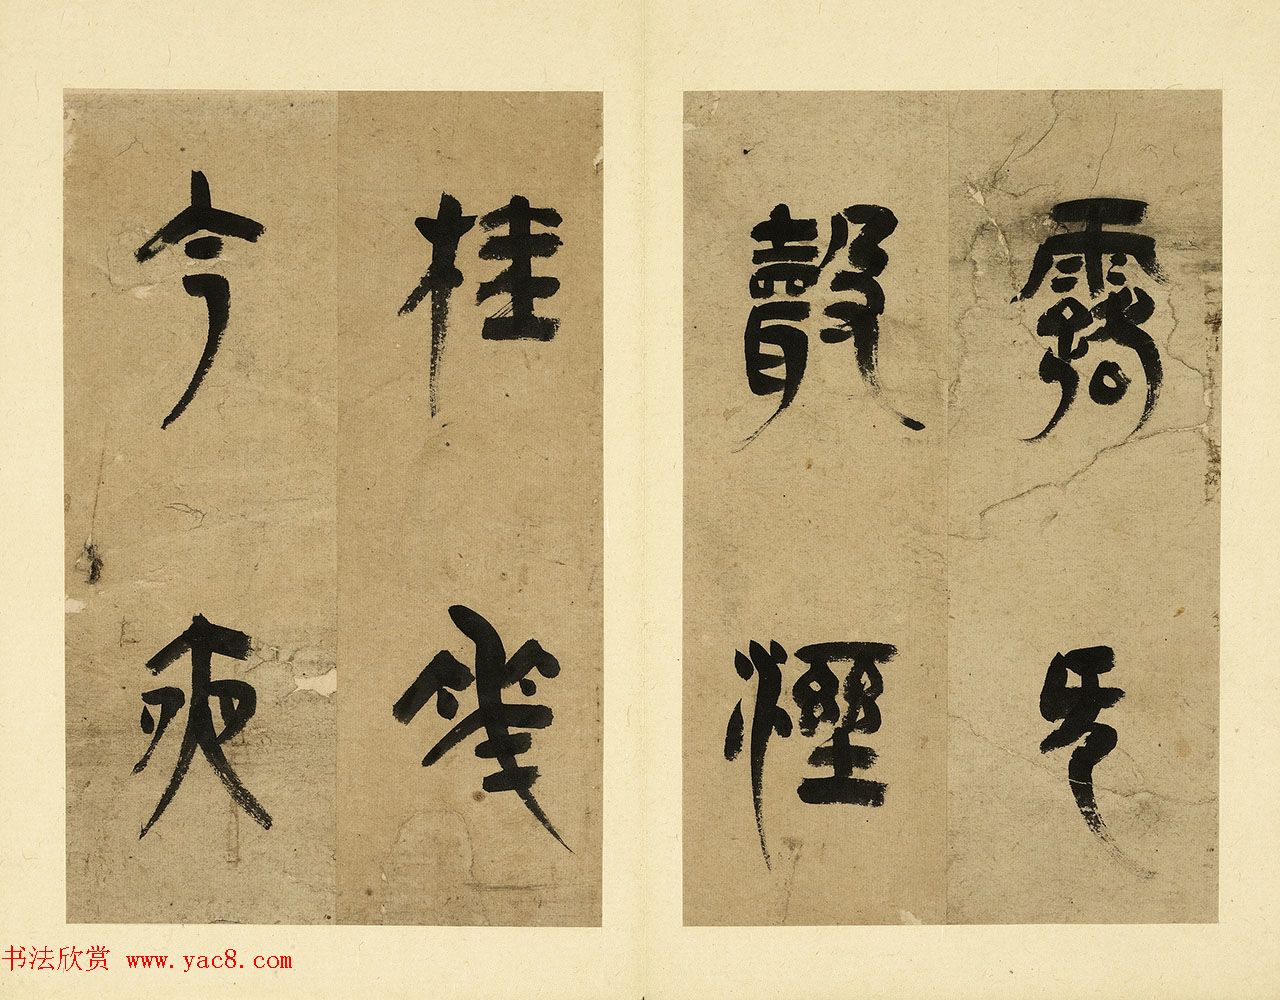 露无
聲溼
桂花
今夜
书法欣赏 www.yac8.com